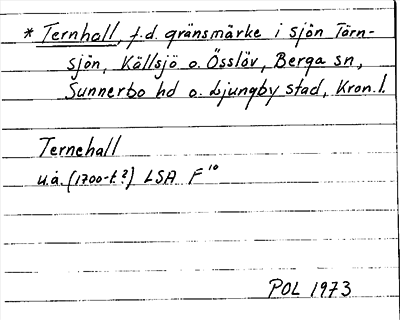 * Ternhall, f.d. gränsmärke i sjön Törn-
sjön, Källsjö o. Össlöv, Berga sn,
Sunnerbo hd o. Ljungby stad, Kron. l.
Ternehall
u.å. (1700-t?) LSA F¹⁰
POL 1973